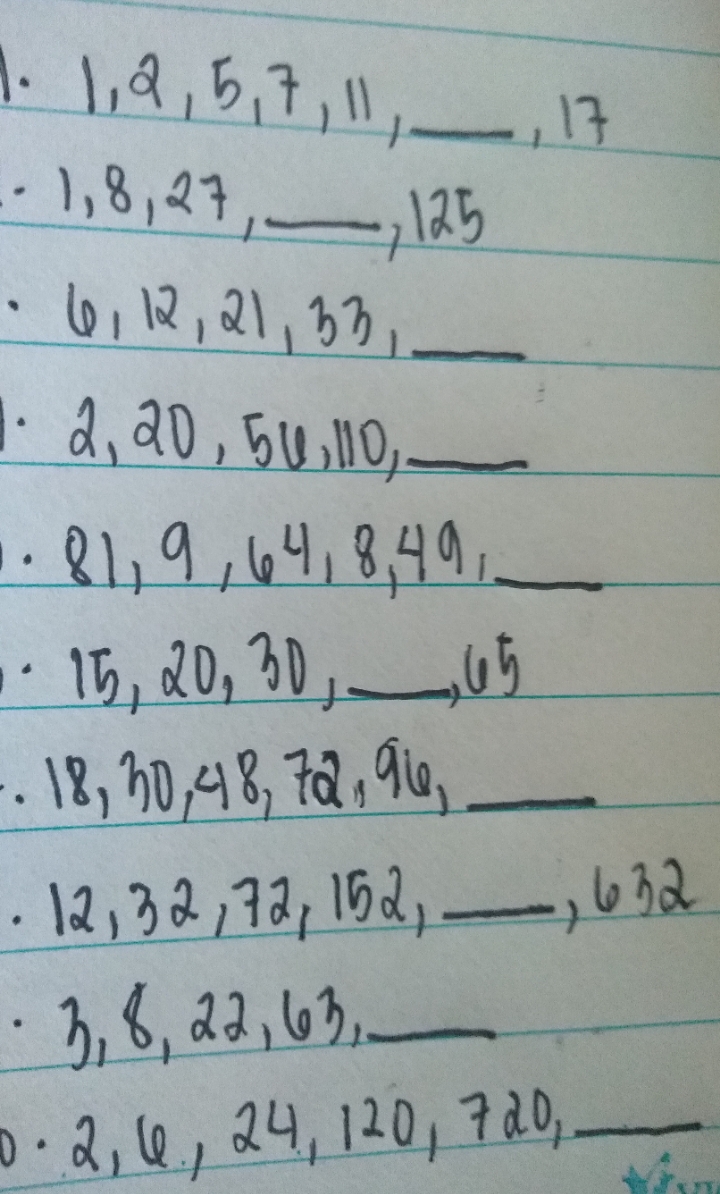 1. 1, 2, 5, 7, 11, ____, 17
. 1, 8, 27, ____, 125
. 6, 12, 21, 33, ____
. 2, 20, 56, 110, ____
. 81, 9, 64, 8, 49, ____
. 15, 20, 30, ____, 65
. 18, 30, 48, 72, 96, ____
. 12, 32, 72, 152, ____, 632
. 3, 8, 22, 63, ____
0. 2, 6, 24, 120, 720, ____